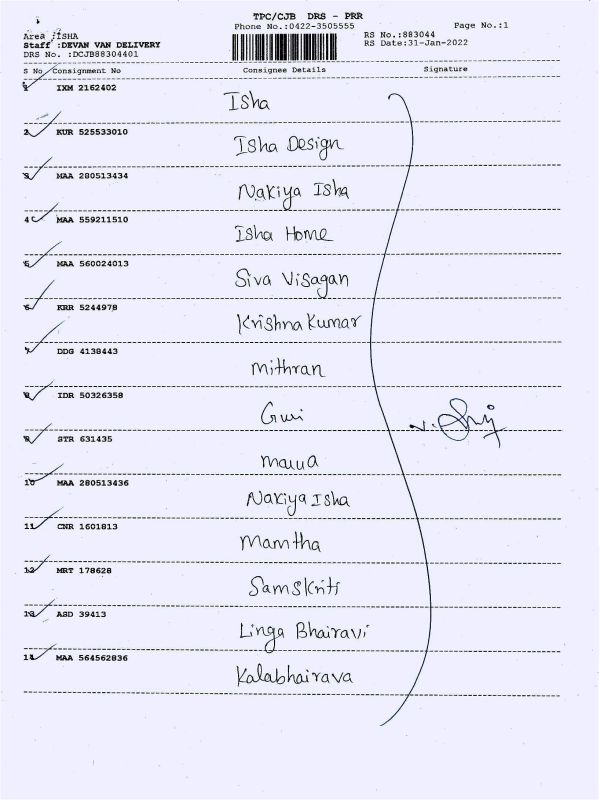 TPC/CJB DRS - PRR
Phone No.:0422-3505555 Page No.:1
Area :ISHA RS No.:883044
Staff :DEVAN VAN DELIVERY RS Date:31-Jan-2022
DRS No. :DCJB88304401
S No Consignment No Consignee Details Signature
1 IXM 2162402 Isha
2 KUR 525533010 Isha Design
3 MAA 280513434 Nakiya Isha
4 MAA 559211510 Isha Home
5 MAA 560024013 Siva Visagan
6 KRR 5244978 Krishna Kumar
7 DDG 4138443 Mithran
8 IDR 50326358
9 STR 631435
10 MAA 280513436 Nakiya Isha
11 CNR 1601813 Mamtha
12 MRT 178628 Samskriti
13 ASD 39413 Linga Bhairavi
14 MAA 564562836 Kalabhairava